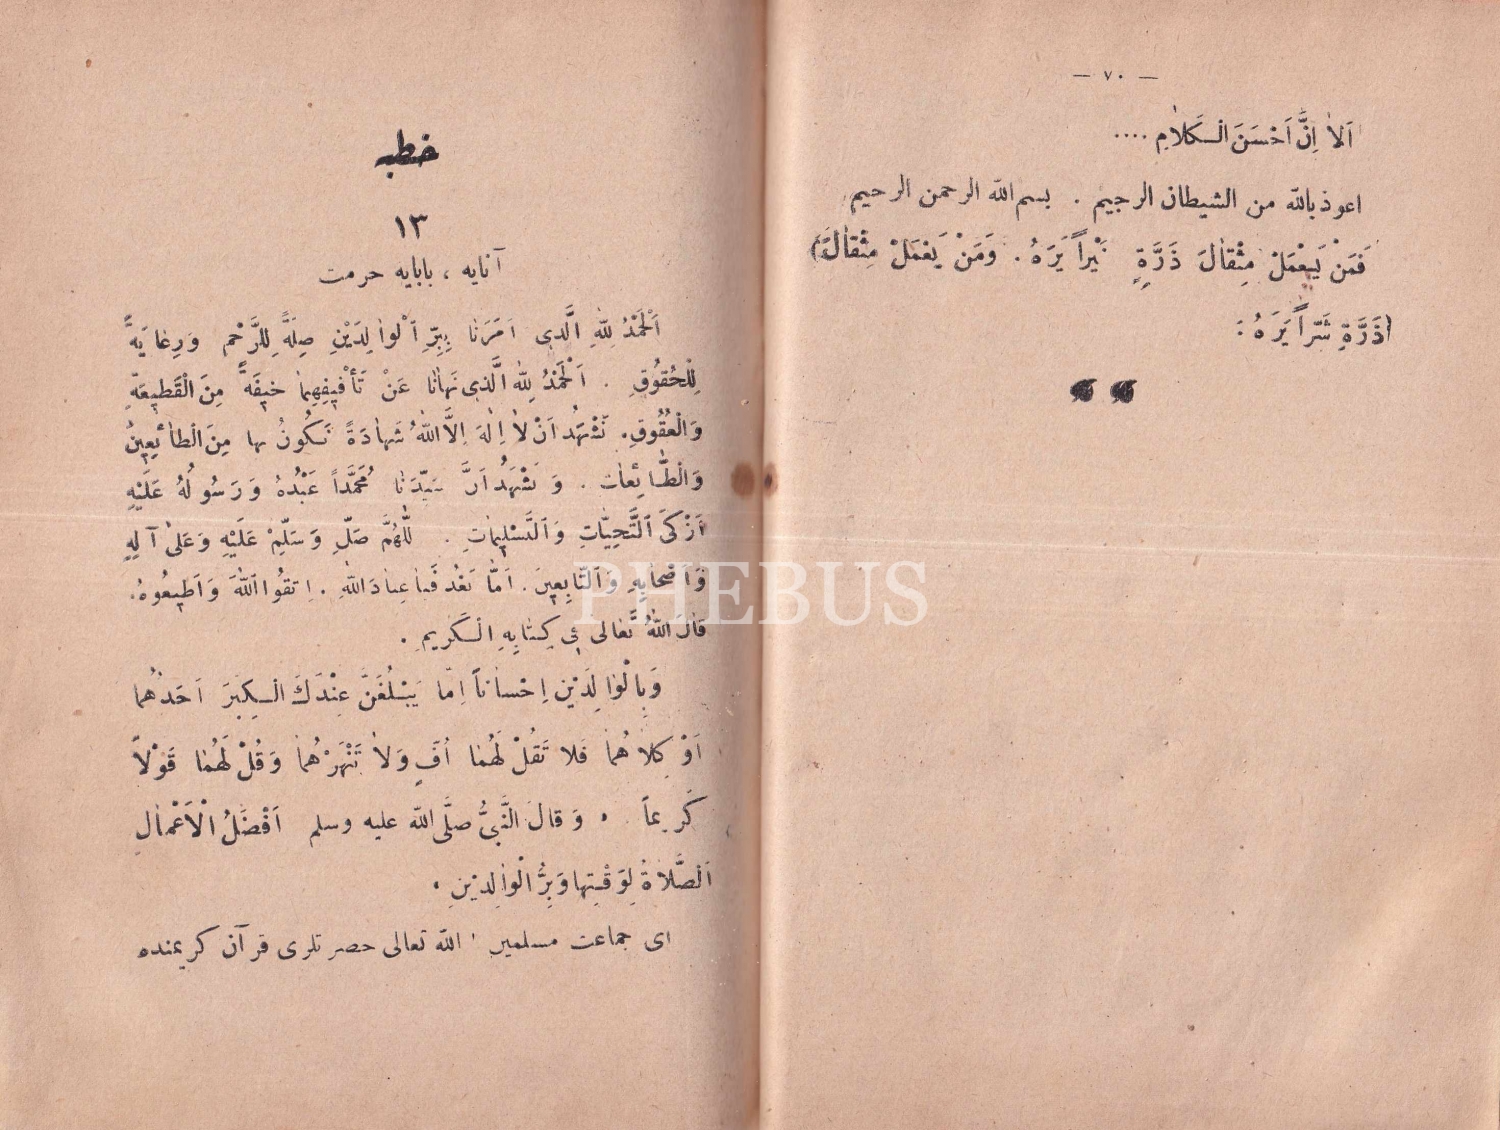 — ٧٠ —
اَلاٰ اِنَّ اَحْسَنَ الْـكَلاٰمِ ....
اعوذ بالله من الشيطان الرجيم . بسم الله الرحمن الرحيم
فَمَنْ يَعْمَلْ مِثْقٰالَ ذَرَّةٍ خَيْراً يَرَهُ . وَمَنْ يَعْمَلْ مِثْقٰالَ)
(ذَرَّةٍ شَرّاً يَرَهُ :
خطبه
١٣
آنايه ، بابايه حرمت
اَلْحَمْدُ لِلّٰهِ الَّذٖى اَمَرَنٰا بِبِرِّ الْوٰالِدَيْنِ صِلَةً لِلرَّحْمِ وَرِعٰايَةً
لِلْحُقُوقِ . اَلْحَمْدُ لِلّٰهِ الَّذٖى نَهٰانٰا عَنْ تَأْفٖيفِهِمٰا خٖيفَةً مِنَ الْقَطٖيعَةِ
وَالْعُقُوقِ. نَشْهَدُ اَنْ لاٰ اِلٰهَ اِلاَّ اللّٰهُ شَهٰادَةً نَكُونُ بها مِنَ الطٰائِعٖينَ
وَالْطّٰائِعٰات . وَ نَشْهَدُ اَنَّ سَيِّدَنٰا مُحَمَّداً عَبْدُهُ وَرَسُولُهُ عَلَيْهِ
اَزْكَى اَلتَّحِيّٰاتِ وَالتَّسْلٖيمٰاتِ . اللّٰهُمَّ صَلِّ وَسَلِّمْ عَلَيْهِ وَعَلىٰ آلِهِ
وَاَصْحٰابِهِ وَالتّٰابِعٖينَ . اَمّٰا بَعْدُ فَيٰا عِبٰادَ اللّٰهِ . اِتَقُوا اللّٰهَ وَاَطٖيعُوهُ.
قٰالَ اللّٰهُ تَعٰالى فٖى كِتٰابِهِ الْـكَرٖيمِ .
وَبِالْوٰالِدَيْنِ اِحْسٰاناً اِمّٰا يَبْلُغَنَّ عِنْدَكَ الْـكِبَرَ اَحَدُهُمٰا
اَوْ كِلاٰهُمٰا فَلا تَقُلْ لَهُمٰا اُفٍّ وَلاٰ تَنْهَرْهُمٰا وَقُلْ لَهُمٰا قَوْلاً
كَرٖيماً . وَقٰالَ النَّبِىُّ صلَّى الله عليه وسلم اَفْضَلُ الْاَعْمٰالِ
اَلصَّلاٰةُ لِوَقْتِها وَبِرُّ الْوٰالِدَيْنِ .
اى جماعت مسلمين ! الله تعالى حضرتلرى قرآن كريمنده
PHEBUS